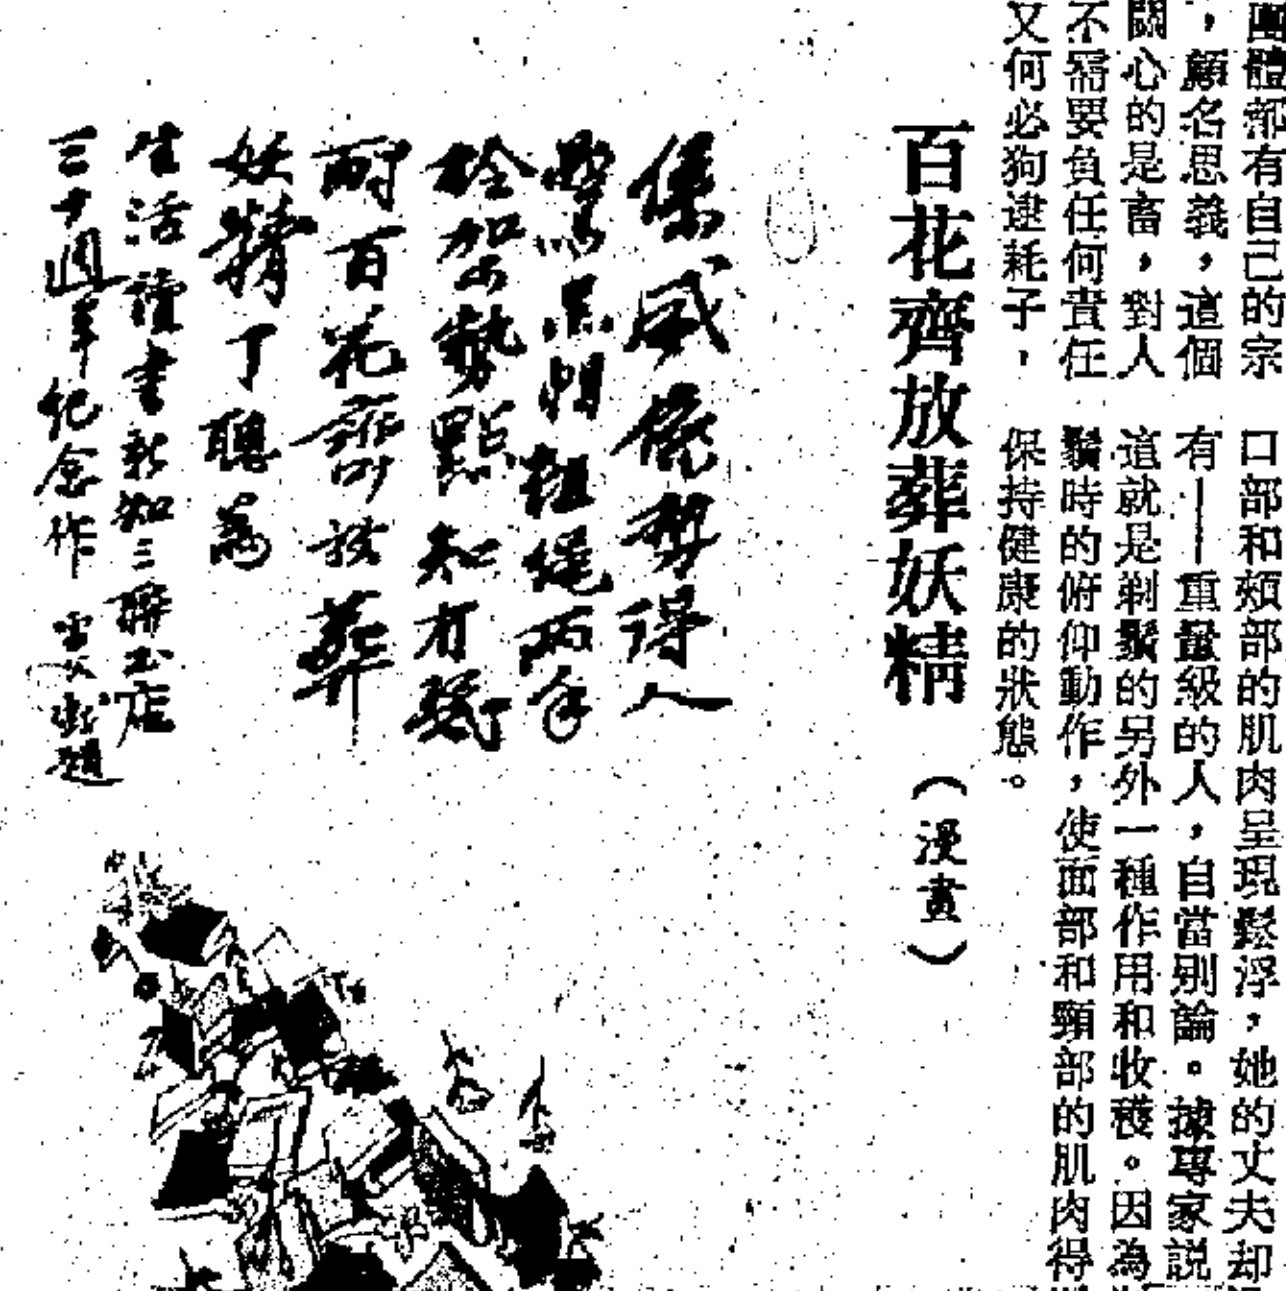 團體都有自己的宗
，顧名思義，這個
關心的是畜，對人
不需要負任何責任
又何必狗逮耗子，
口部和頰部的肌肉呈現鬆浮，她的丈夫却
有——重量級的人，自當別論。據專家説
這就是剃鬚的另外一種作用和收穫。因為
鬚時的俯仰動作，使面部和頸部的肌肉得
保持健康的狀態。
百花齊放葬妖精（漫畫）
係威係勢得人
驚黑帽粗繩兩手
拴架勢點知冇幾
耐百花齊放葬
妖精了 聰為
生活讀書新知三聯書店
三十週年紀念作